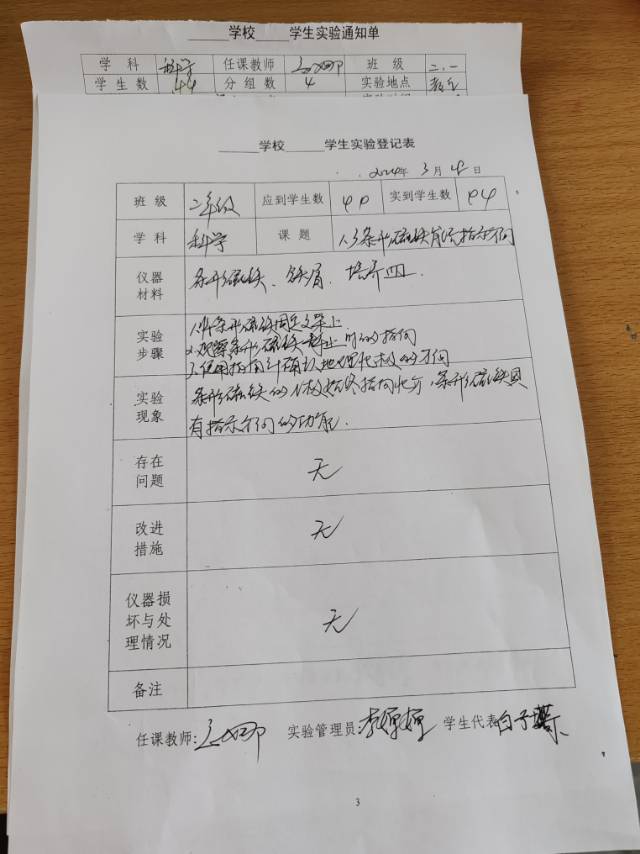 学校 学生实验通知单
学科 科学 任课教师 班级 二.一
学生数 44 分组数 4 实验地点
学校 学生实验登记表
2024年 3月 日
班级 二年级 应到学生数 实到学生数
学科 科学 课题 条形磁铁 指示方向
仪器材料 条形磁铁、铁屑、培养皿.
实验步骤 1.将条形磁铁固定支架上
2.观察条形磁铁静止时的指向
3.使用指南针确认地理北极的方向
实验现象 条形磁铁的N极始终指向北方,条形磁铁具
有指示方向的功能.
存在问题 无
改进措施 无
仪器损坏与处理情况 无
备注
任课教师: 实验管理员: 学生代表:白子
3